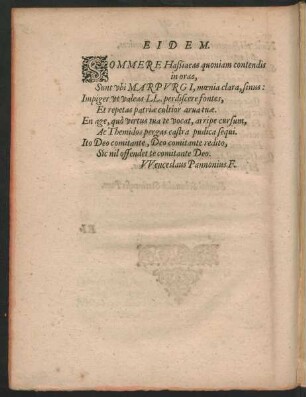 EIDEM.
SOMMERE Hassiacas quoniam contendis
in oras,
Sunt ubi MARPURGI, mœnia clara, sinus:
Impiger ut valeas LL. perdiscere fontes,
Et repetas patriæ cultior arva tuæ.
En age, quò vertus tua te vocat, arripe cursum,
Ac Themidos pergas castra pudica sequi.
Ito Deo comitante, Deo comitante redito,
Sic nil offendet te comitante Deo.
VVenceslaus Pannonius F.